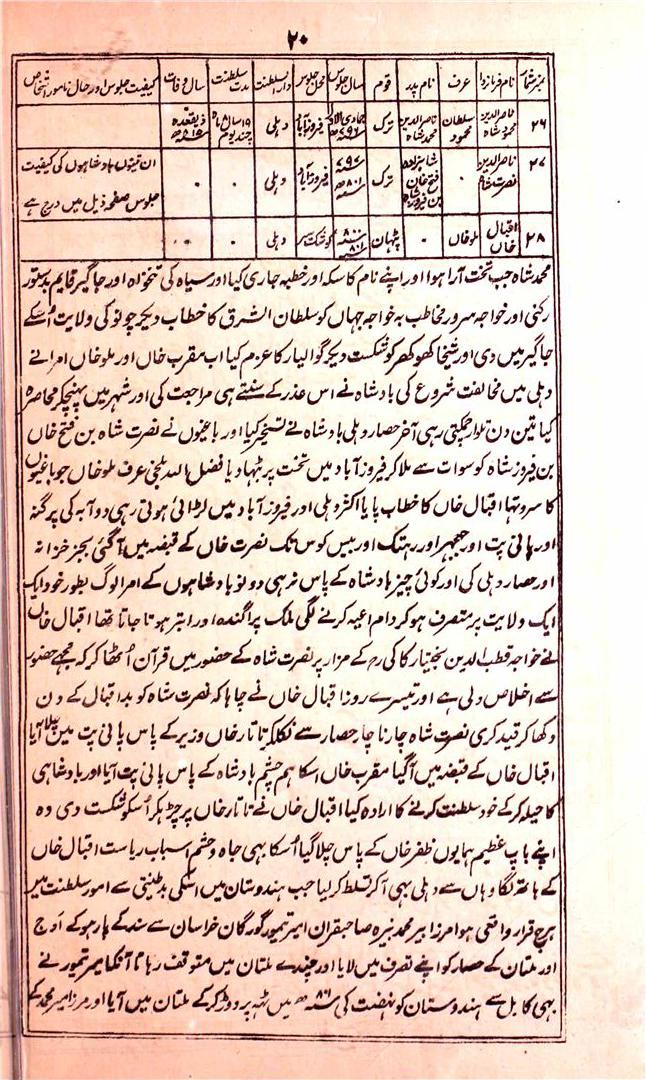 ۲۰
نمبر شمار نام فرمانروا عرف نام پدر قوم سال جلوس محل جلوس دار السلطنت مدت سلطنت سال وفات کیفیت جلوس اور حال نامور اشخاص
۲۶ ناصر الدین محمود شاہ سلطان محمود ناصر الدین محمد شاہ ترک ۷۹۶ھ فیروزآباد دہلی ذیقعدہ ۸۱۵ھ
۲۷ ناصر الدین نصرت شاہ ۰ شاہزادہ فتح خان بن فیروز شاہ ترک ۷۹۷ ۸۰۱ھ فیروزآباد دہلی ۰ ۰ ان تینوں بادشاہوں کی کیفیت جلوس صفحہ ذیل میں درج ہے
۲۸ اقبال خاں ملو خاں ۰ پٹھان ۸۰۰ ۸۰۱ دہلی ۰
محمد شاہ جب تخت آرا ہوا اور اپنے نام کا سکہ اور خطبہ جاری کیا اور سپاہ کی تنخواہ اور جاگیر قایم بدستور
رکھی اور خواجہ سرور مخاطب بہ خواجہ جہاں کو سلطان الشرق کا خطاب دیکر جونپور کی ولایت اُسکے
جاگیر میں دی اور شیخا کھوکھر کو شکست دیکر گوالیار کا عزم کیا اب مقرب خاں اور ملو خاں امرا نے
دہلی میں مخالفت شروع کی بادشاہ نے اس عذر کے سنتے ہی مراجعت کی اور شہر میں پہنچکر محاصرہ
کیا تین دن تلوار چمکتی رہی آخر حصار دہلی بادشاہ نے تسخیر کیا اور باغیوں نے نصرت شاہ بن فتح خاں
بن فیروز شاہ کو سوات سے ملا کر فیروزآباد میں تخت پر بٹھا دیا فضل اللہ بلخی عرف ملو خاں جو باغیوں
کا سر و تھا اقبال خاں کا خطاب پایا اکثر دہلی اور فیروزآباد میں لڑائی ہوتی رہی دوآبہ کی پرگنہ
اور پانی پت اور جھجر اور رہتک اور بیس کوس تک نصرت خاں کے قبضہ میں آگئی بجز خزانہ
اور حصار دہلی کی اور کوئی چیز بادشاہ کے پاس نرہی دونو بادشاہوں کے امرا لوگ بطور خود ایک
ایک ولایت پر متصرف ہو کر دام اعیہ کرنے لگی ملک پراگندہ اور ابتر ہوتا جاتا تھا اقبال خاں
نے خواجہ قطب الدین بختیار کاکی رح کے مزار پر نصرت شاہ کے حضور میں قرآن اُٹھا کر کہ مجھے حضور
سے اخلاص دلی ہے اور تیسرے روز اقبال خاں نے چاہا کہ نصرت شاہ کو بد اقبال کے دن
دکھا کر قید کری نصرت شاہ چار ناچار حصار سے نکلکر تاتار خاں وزیر کے پاس پانی پت میں چلا آیا
اقبال خاں کے قبضہ میں آگیا مقرب خاں اسکا ہم چشم بادشاہ کے پاس پانی پت آیا اور بادشاہی
کا حیلہ کر کے خود سلطنت کرنے کا ارادہ کیا اقبال خاں نے تاتار خاں پر چڑہکر اُسکو شکست دی وہ
اپنے باپ عظیم ہمایوں ظفر خاں کے پاس چلا گیا اُسکا بھی جاہ و حشم اسباب ریاست اقبال خاں
کے ہاتھ لگا وہاں سے دہلی بھی آ کر تسلط کر لیا جب ہندوستان میں اسکی بدطینتی سے امور سلطنت میں
ہرج قرار واقعی ہوا مرزا پیر محمد نبیرہ صاحبقران امیر تیمور گورگان خراسان سے سند کے پار ہو کے اوج
اور ملتان کے حصار کو اپنے تصرف میں لایا اور چندے ملتان میں متوقف رہا تا آنکہ امیر تیمور نے
بھی کابل سے ہندوستان کو نہضت کی ۸۰۱ھ میں ٹھہ پر دوڑ کر کے ملتان میں آیا اور مرزا پیر محمد کے